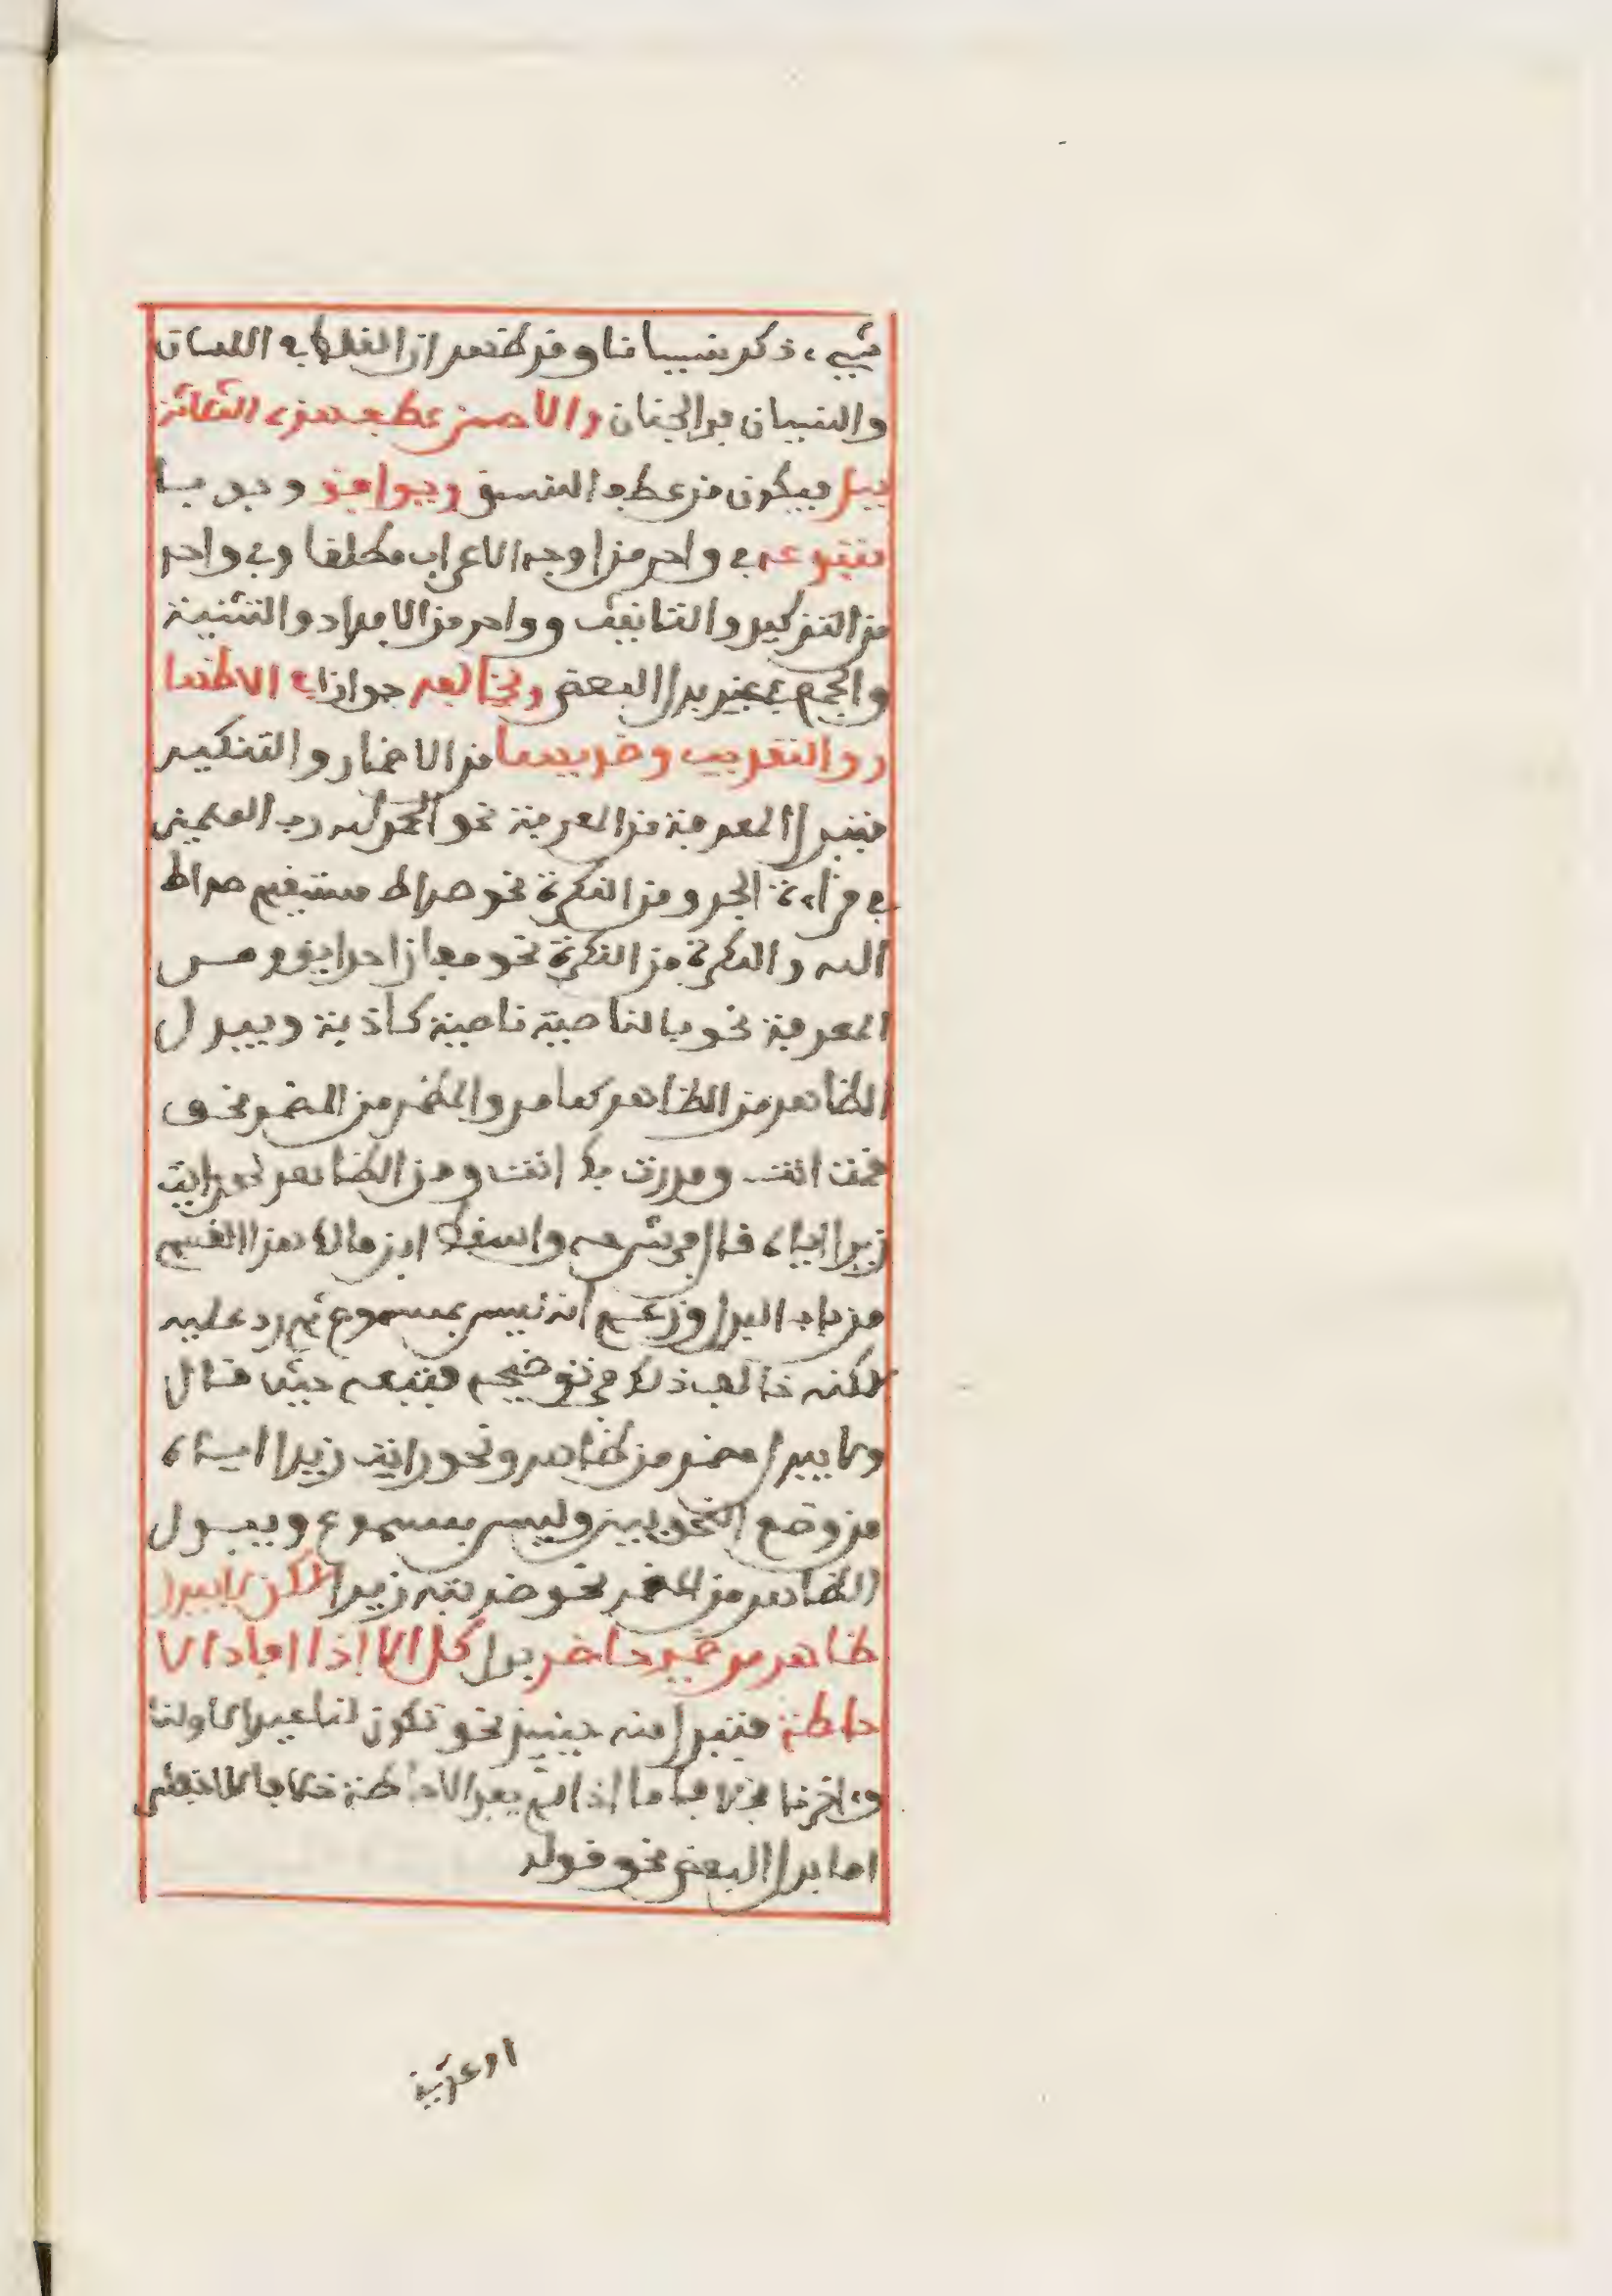 شيء ذكر نسيانا وقد ظهر ان الغلط في اللسان
والنسيان في الجنان والاحسن عطف هذه الثلاثة
ببل فيكون من عطف النسق ويوافق وجوبا
متبوعه في واحد من اوجه الاعراب مطلقا وفي واحد
من التذكير والتانيث وواحد من الافراد والتثنية
والجمع في غير بدل البعض ويخالفه جوازا في الاظها
ر والتعريف وضديهما من الاضمار والتنكير
فتبدل المعرفة من المعرفة نحو الحميد الله رب العلمين
في قراءة الجر ومن النكرة نحو صراط مستقيم صراط
الله والنكرة من النكرة نحو مفازا حدايق ومن
المعرفة نحو بالناصية ناصية كاذبة ويبدل
الظاهر من الظاهر كما مر والمضمر من المضمر نحو
قمت انت ومررت بك انت ومن الظاهر نحو رايت
زيدا اياه قال في شرحه واسقط ابن مالك هذا القسم
من باب البدل وزعم انه ليس بمسموع ثم رد عليه
لكنه خالف ذلك في توضيحه فتبعه حيث قال
ولا يبدل مضمر من ظاهر ونحو رايت زيدا اياه
من وضع النحويين وليس بمسموع ويبدل
الظاهر من المضمر نحو ضربته زيدا لكن لا يبدل
ظاهر من ضمير حاضر بدل كل الا اذا افاد الا
حاطة فتبدل منه حينئذ نحو تكون لنا عيدا لاولنا
وءاخرنا بخلاف ما اذا لم يفد الاحاطة خلافا للاخفش
اما بدل البعض نحو قوله